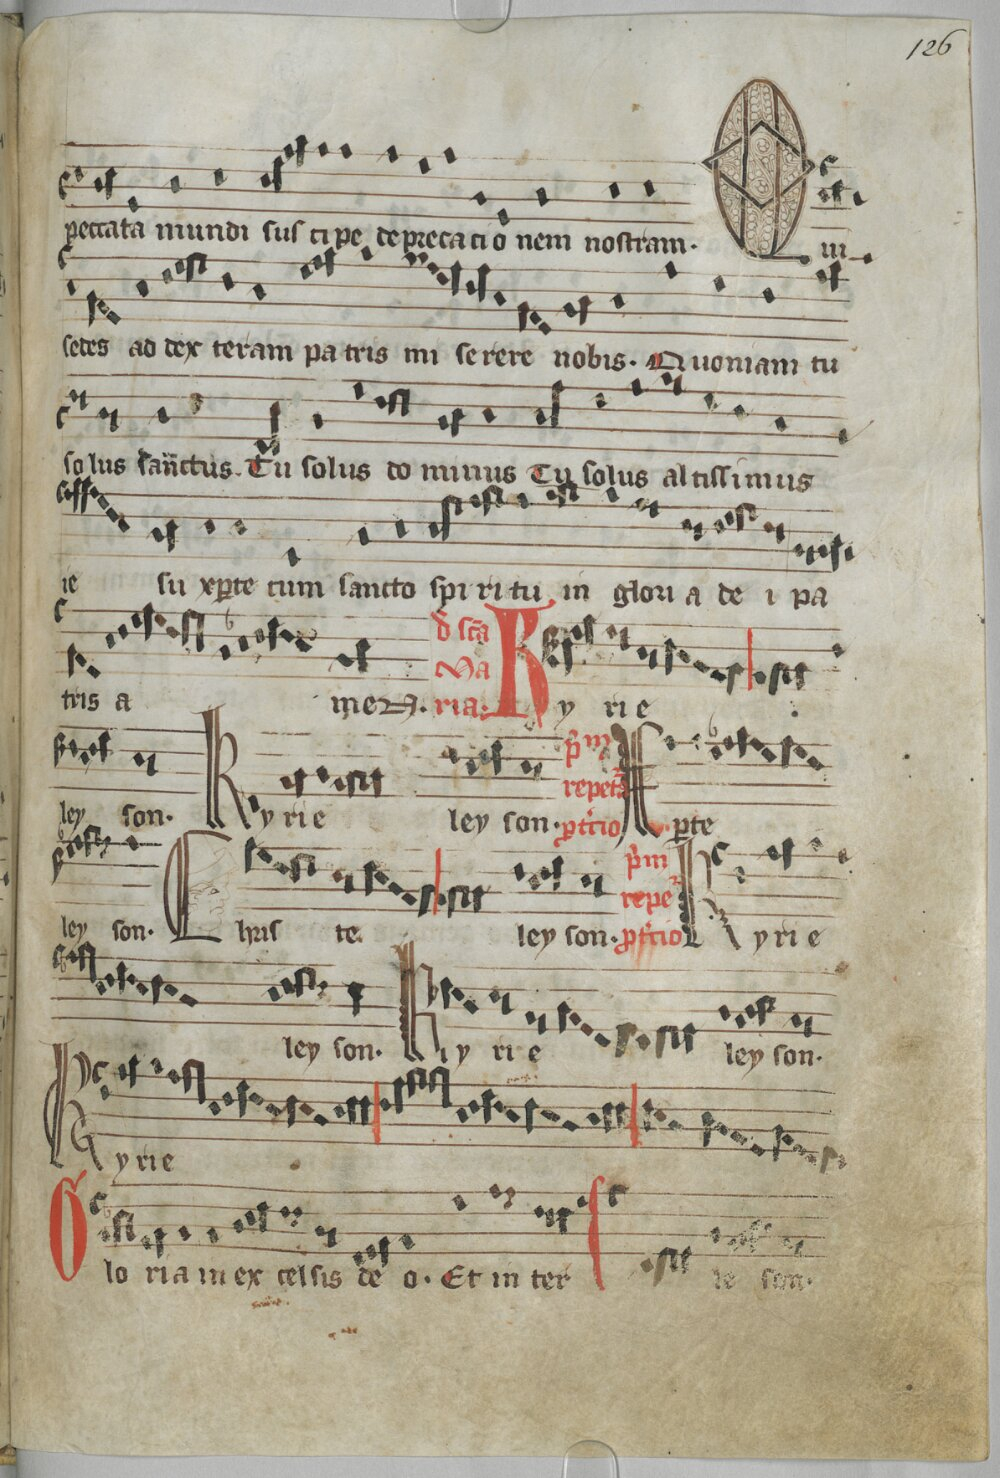 126
peccata mundi sus ci pe deprecacio nem nostram. Qui
sedes ad dex teram pa tris mi serere nobis. Quoniam tu
solus sanctus. Tu solus do minus Tu solus altissimus
ie su xpte cum sancto spiri tu in glori a de i pa
tris a men. d̄ scā Ma ria. Ky rie
ley son. Kyrie ley son. p̄m repet pt̄cio Xpte
ley son. Chris te ley son. p̄m repe pt̄cio Kyrie
ley son. Ky ri e ley son.
Kyrie
Glo ria in ex celsis de o. Et in ter le son.